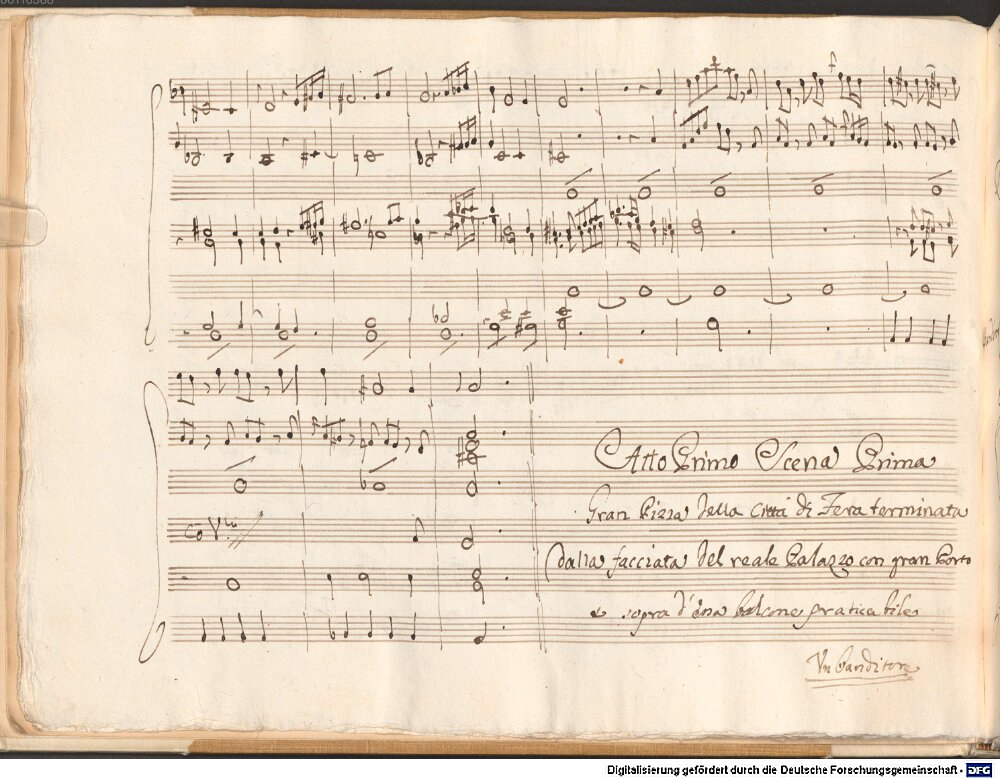 Co Vni
Atto Primo Scena Prima
Gran Pizza della Città di Fera terminata
dalla facciata del reale Palazzo con gran Porto
e sopra d'essa balcone praticabile
Un banditore
Digitalisierung gefördert durch die Deutsche Forschungsgemeinschaft - DFG